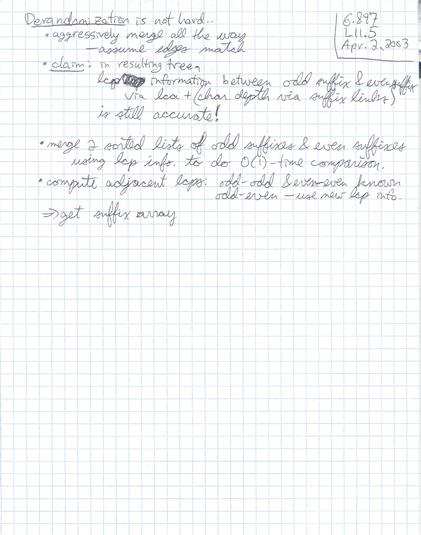 Derandomization is not hard..
• aggressively merge all the way
— assume edges match
• claim: in resulting tree,
lcp information between odd suffix & even suffix
via lca + (char. depth via suffix links)
is still accurate!
• merge 2 sorted lists of odd suffixes & even suffixes
using lcp info. to do O(1)-time comparison.
• compute adjacent lcps: odd-odd & even-even known
odd-even — use new lcp info.
⇒ get suffix array
6.897
L11.5
Apr. 2, 2003